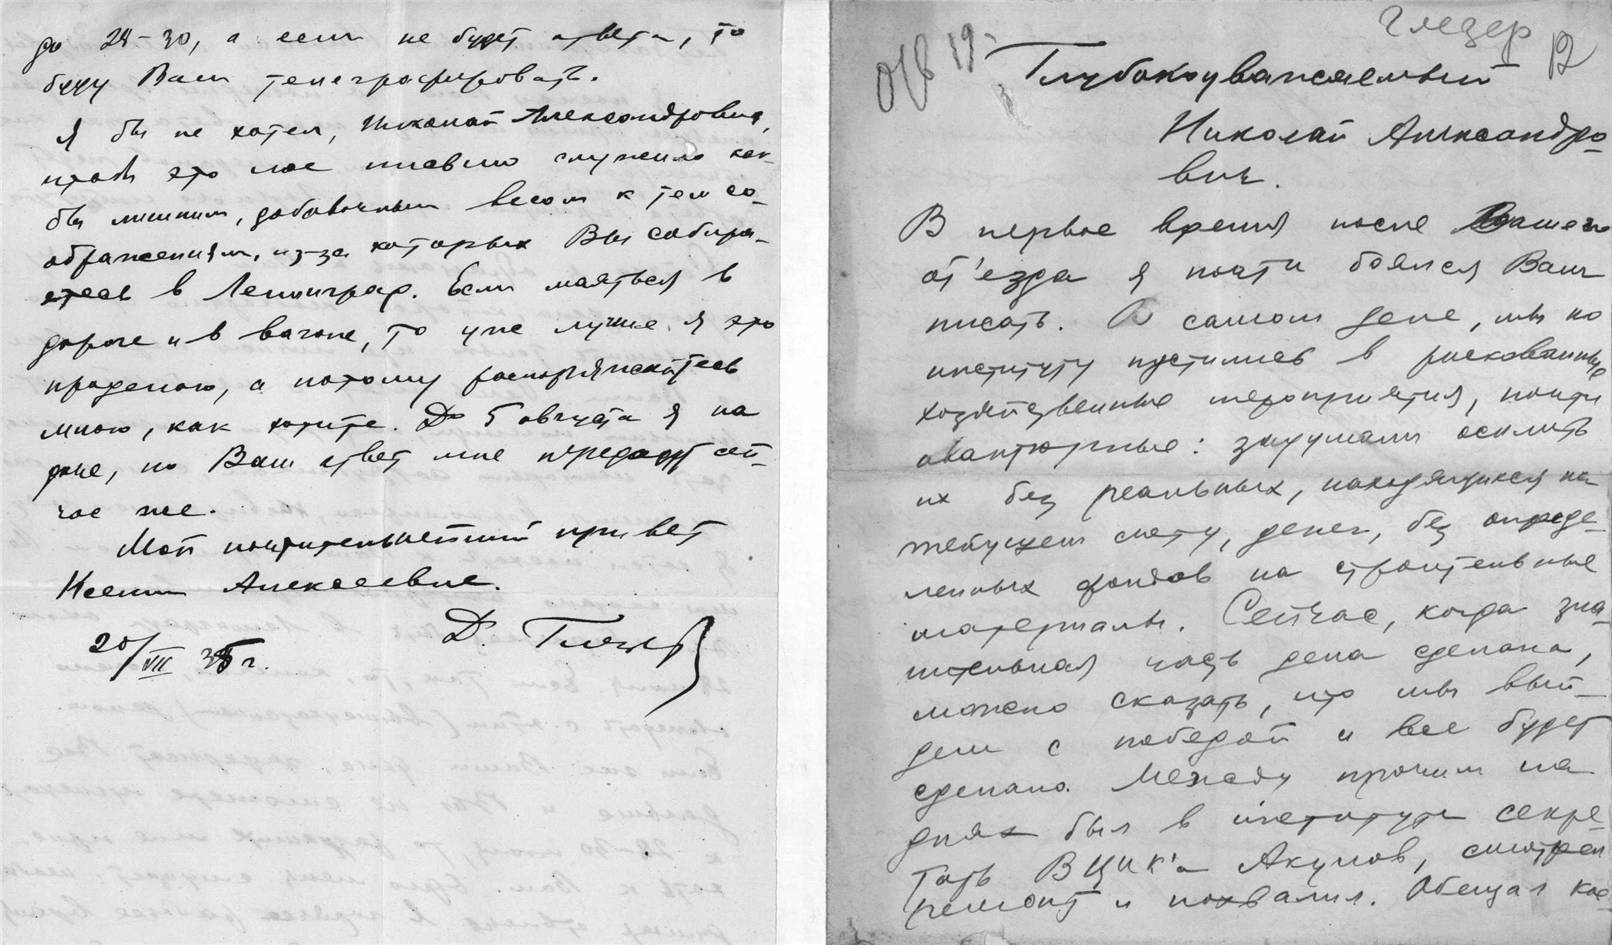 до 28-30, а если не будет ответа, то
буду Вам телеграфировать.
Я бы не хотел, Николай Александрович,
чтобы это мое письмо служило как
бы лишним, добавочным весом к тем со-
ображениям, из-за которых Вы собира-
етесь в Ленинград. Если маяться в
дороге и в вагоне, то уже лучше я это
проделаю, а потому распоряжайтесь
мною, как хотите. До 5 августа я на
даче, но Ваш ответ мне передадут сей-
час же.
Мой почтительнейший привет
Ксении Алексеевне.
Д. Глезер
20/VII 35 г.
Глезер
12
отв 19
Глубокоуважаемый
Николай Александро-
вич.
В первое время после Вашего
от'езда я почти боялся Вам
писать. В самом деле, мы по
институту пустились в рискованные
хозяйственные мероприятия, почти
авантюрные: задумали осилить
их без реальных, находящихся на
текущем счету, денег, без опреде-
ленных фондов на строительные
материалы. Сейчас, когда зна-
чительная часть дела сделана,
можно сказать, что мы вый-
дем с победой и все будет
сделано. Между прочим на
днях был в институте секре-
тарь ВЦИК'а Акулов, смотрел
ремонт и похвалил. Обещал кое-